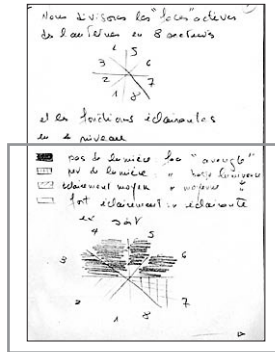 Nous divisons les "faces" actives
des lanternes en 8 secteurs
4 5
3 6
2 7
1 8
et les fonctions éclairantes
en 4 niveaux
pas de lumière : face "aveugle"
peu de lumière : " basse luminance
éclairement moyen " moyenne "
fort éclairement : " éclairante
ex soit
4 5
3 6
2 7
1 8